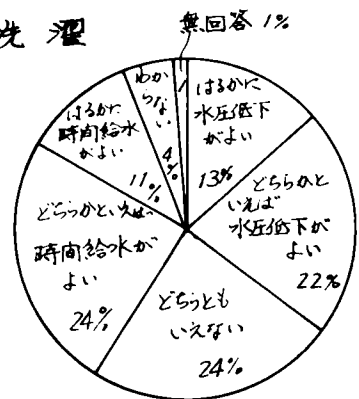 洗濯
無回答 1%
はるかに
水圧低下
がよい
13%
どちらかと
いえば
水圧低下が
よい
22%
どちらとも
いえない
24%
どちらかといえば
時間給水が
よい
24%
はるかに
時間給水
がよい
11%
わか
らない
4%
1